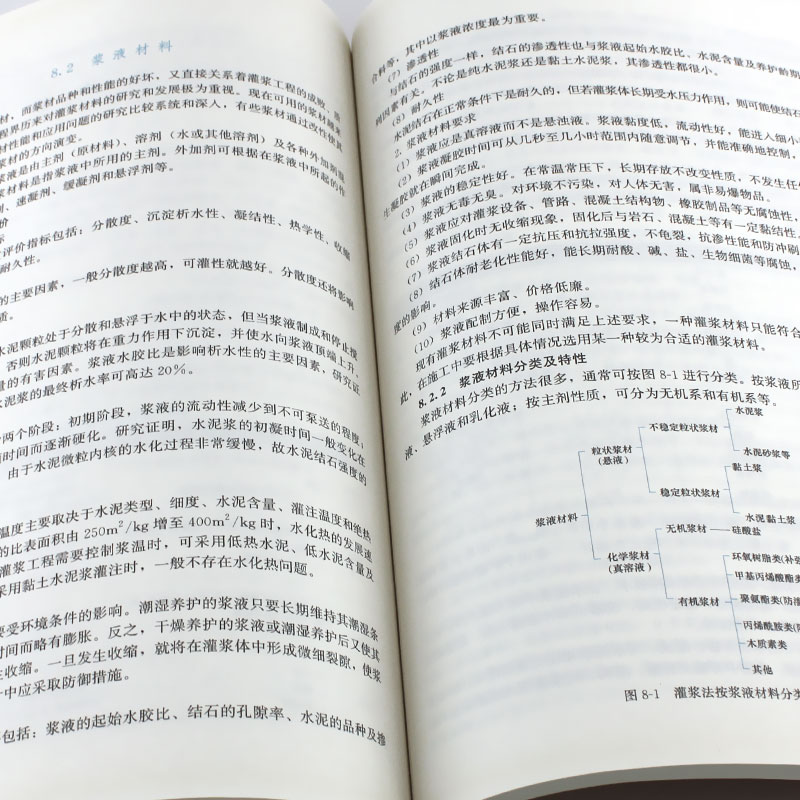 8.2 浆液材料
材，而浆材品种和性能的好坏，又直接关系着灌浆工程的成败、质
程界历来对灌浆材料的研究和发展极为重视。现在可用的浆材越来
材性能和应用问题的研究比较系统和深入，有些浆材通过改性使其
浆材的方向演变。
浆液是由主剂（原材料）、溶剂（水或其他溶剂）及各种外加剂混
浆材料是指浆液中所用的主剂。外加剂可根据在浆液中所起的作
剂、速凝剂、缓凝剂和悬浮剂等。
价
标
评价指标包括：分散度、沉淀析水性、凝结性、热学性、收缩
耐久性。
的主要因素，一般分散度越高，可灌性就越好。分散度还将影响
质。
水泥颗粒处于分散和悬浮于水中的状态，但当浆液制成和停止搅
否则水泥颗粒将在重力作用下沉淀，并使水向浆液顶端上升。
量的有害因素。浆液水胶比是影响析水性的主要因素，研究证
水泥浆的最终析水率可高达20%。
两个阶段：初期阶段，浆液的流动性减少到不可泵送的程度；
时间而逐渐硬化。研究证明，水泥浆的初凝时间一般变化在
由于水泥微粒内核的水化过程非常缓慢，故水泥结石强度的
温度主要取决于水泥类型、细度、水泥含量、灌注温度和绝热
的比表面积由250m²/kg增至400m²/kg时，水化热的发展速
灌浆工程需要控制浆温时，可采用低热水泥、低水泥含量及
采用黏土水泥浆灌注时，一般不存在水化热问题。
要受环境条件的影响。潮湿养护的浆液只要长期维持其潮湿条
时间而略有膨胀。反之，干燥养护的浆液或潮湿养护后又使其
生收缩。一旦发生收缩，就将在灌浆体中形成微细裂隙，使浆
中应采取防御措施。
包括：浆液的起始水胶比、结石的孔隙率、水泥的品种及掺
合料等，其中以浆液浓度最为重要。
（7）渗透性
与结石的强度一样，结石的渗透性也与浆液起始水胶比、水泥含量及养护龄期
因素有关。不论是纯水泥浆还是黏土水泥浆，其渗透性都很小。
（8）耐久性
水泥结石在正常条件下是耐久的，但若灌浆体长期受水压力作用，则可能使结石
2. 浆液材料要求
（1）浆液应是真溶液而不是悬浊液。浆液黏度低，流动性好，能进入细小
（2）浆液凝胶时间可从几秒至几小时范围内随意调节，并能准确地控制，
生凝胶就在瞬间完成。
（3）浆液的稳定性好。在常温常压下，长期存放不改变性质，不发生任
（4）浆液无毒无臭。对环境不污染，对人体无害，属非易爆物品。
（5）浆液应对灌浆设备、管路、混凝土结构物、橡胶制品等无腐蚀性，
（6）浆液固化时无收缩现象，固化后与岩石、混凝土等有一定黏结性。
（7）浆液结石体有一定抗压和抗拉强度，不龟裂，抗渗性能和防冲刷
（8）结石体耐老化性能好，能长期耐酸、碱、盐、生物细菌等腐蚀，
度的影响。
（9）材料来源丰富、价格低廉。
（10）浆液配制方便，操作容易。
现有灌浆材料不可能同时满足上述要求，一种灌浆材料只能符合
此，在施工中要根据具体情况选用某一种较为合适的灌浆材料。
8.2.2 浆液材料分类及特性
浆液材料分类的方法很多，通常可按图8-1进行分类。按浆液所
液、悬浮液和乳化液；按主剂性质，可分为无机系和有机系等。
水泥浆
不稳定粒状浆材
水泥砂浆等
粒状浆材
（悬液）
黏土浆
稳定粒状浆材
水泥黏土浆
浆液材料
无机浆材
硅酸盐
化学浆材
（真溶液）
环氧树脂类(补强
甲基丙烯酸酯类
有机浆材
聚氨酯类(防渗
丙烯酰胺类(防
木质素类
其他
图8-1 灌浆法按浆液材料分类